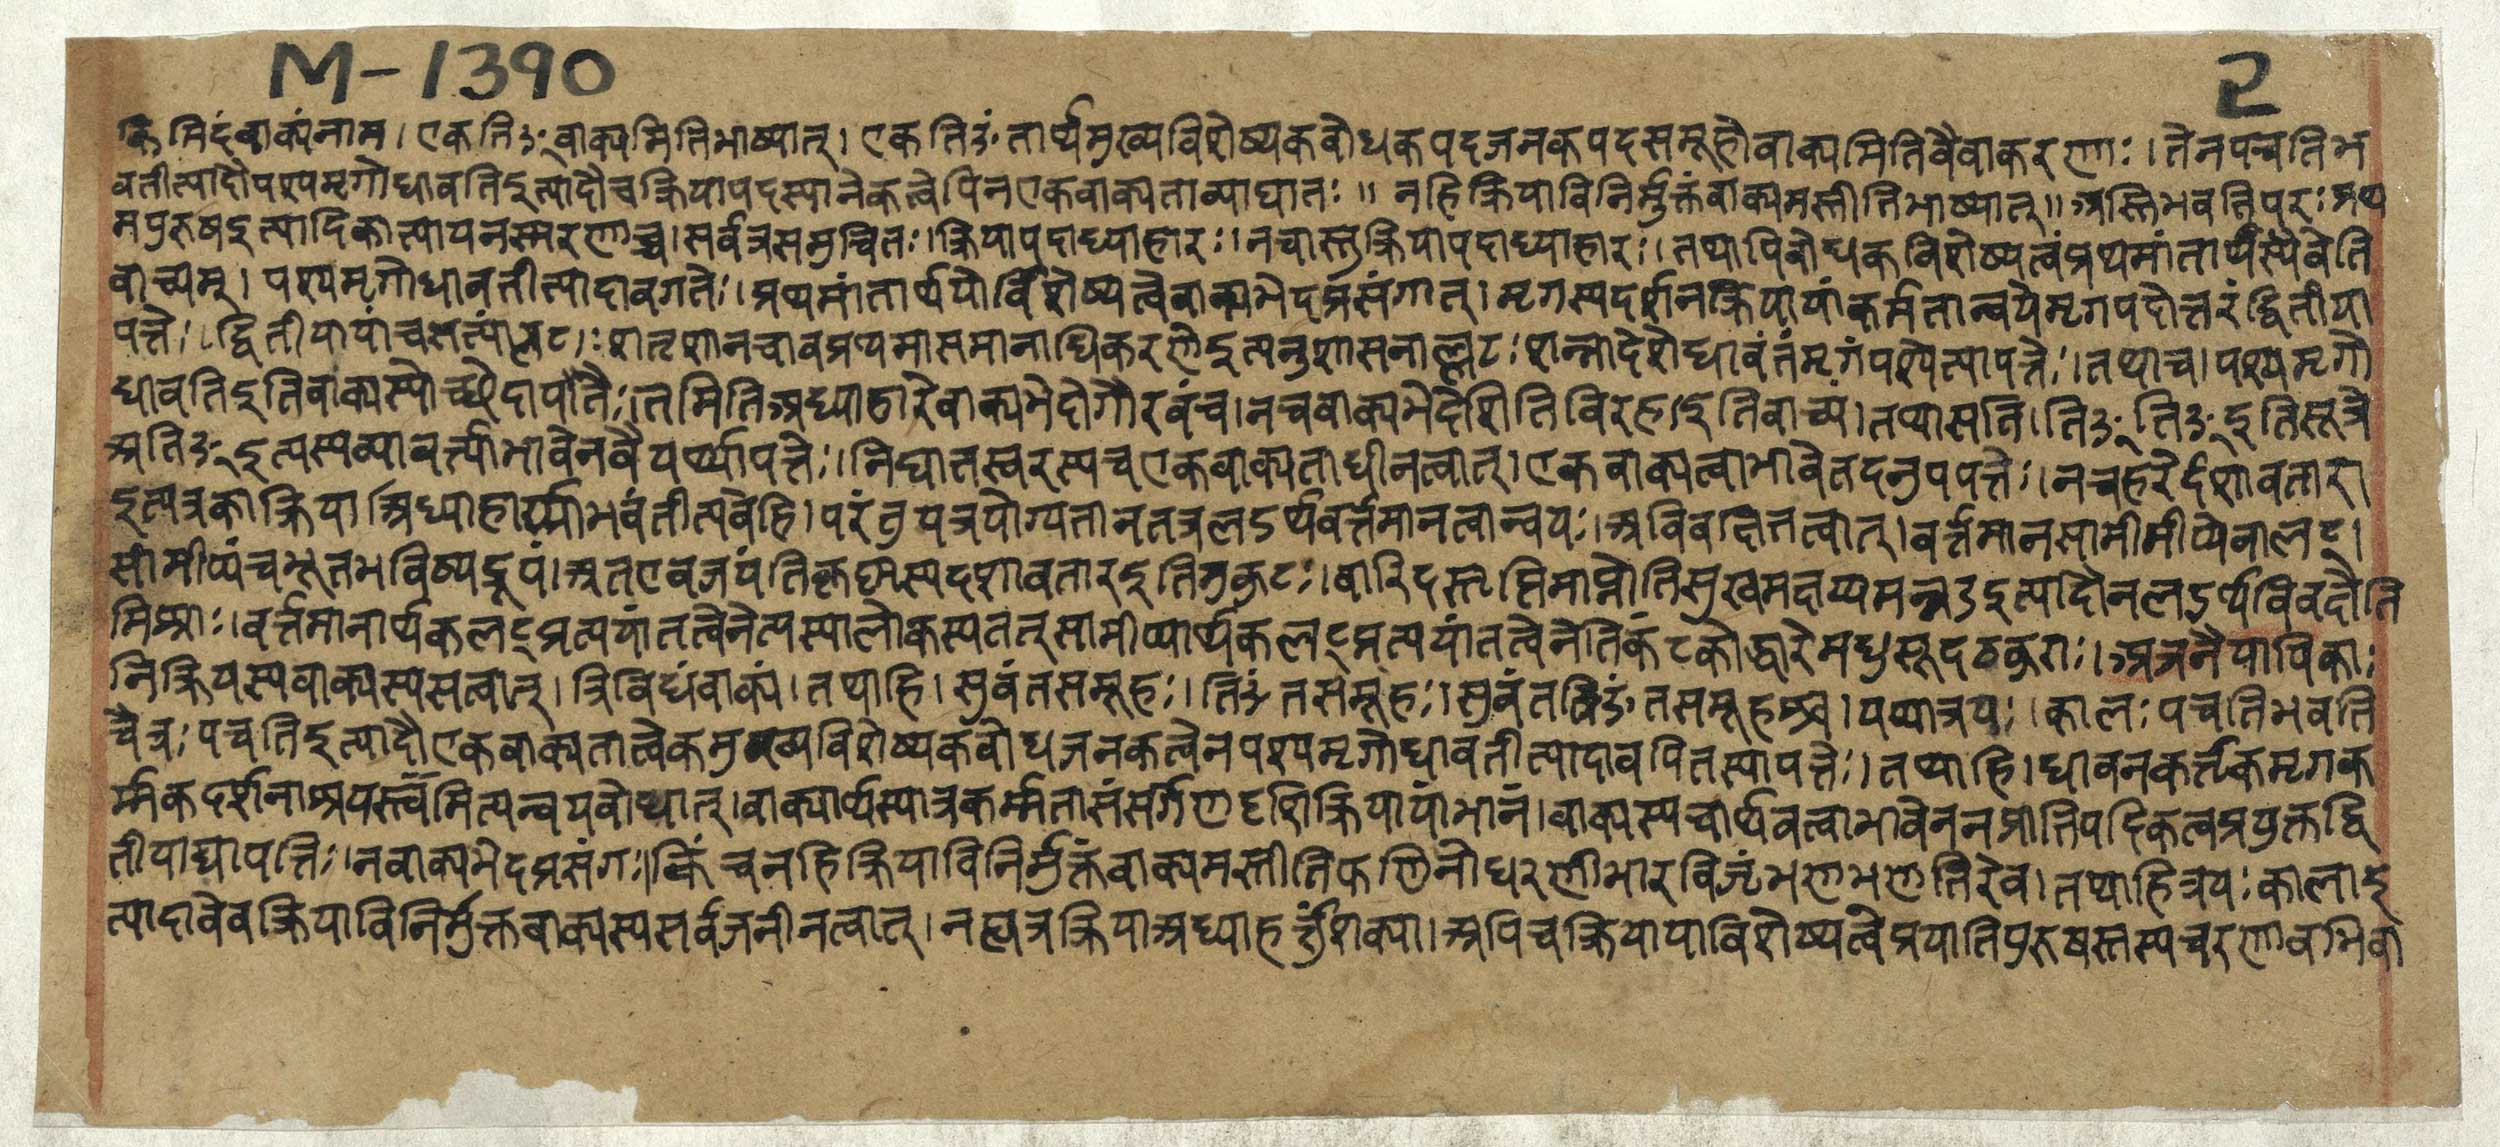 M-1390
2
किमिदंवाक्यंनाम। एकतिङ्वाक्यमितिभाष्यात्। एकतिङंतार्थमुख्यविशेष्यकबोधकपदजनकपदसमूहोवाक्यमितिवैयाकरणाः। तेनपचतिभ
वतीत्यादौपश्यमृगोधावतिइत्यादौचक्रियापदस्यानेकत्वेपिनएकवाक्यताव्याघातः॥ नहिक्रियाविनिर्मुक्तंवाक्यमस्तीतिभाष्यात्॥ अस्तिभवतिपरःप्रथ
मपुरुषइत्यादिकात्यायनस्मरणाच्च। सर्वत्रसमुचितः।क्रियापदाध्याहारः।नचास्तुक्रियापदाध्याहारः। तथापिबोधकविशेष्यत्वंप्रथमांतार्थस्यैवेति
वाच्यम्। पश्यमृगोधावतीत्यादावगतेः। प्रथमांतार्थयोर्विशेष्यत्वेवाक्यभेदप्रसंगात्। मृगस्यदर्शनक्रियायांकर्मतान्वयेमृगपदोत्तरंद्वितीया
पत्तेः।द्वितीयायांचसत्यांलटःशतृशानचावप्रथमासमानाधिकरणेइत्यनुशासनाल्लटःशत्रादेशेधावंतंमृगंपश्येत्यापत्तेः।तथाच। पश्यमृगो
धावतिइतिवाक्यस्योच्छेदापत्तेः।तमितिअध्याहारेवाक्यभेदोगौरवंच। नचवाक्यभेदेशितिविरहइतिवाच्यं। तथासति। तिङ्तिङ्इतिसूत्रे
अतिङ्इत्यस्यव्यावर्त्त्याभावेनवैयर्थ्यापत्तेः। निघातस्वरस्यचएकवाक्यताधीनत्वात्। एकवाक्यत्वाभावेतदनुपपत्तेः। नचहरेर्दशावतारा
इत्यत्रकाक्रियाअध्याहार्य्याभवंतीत्यवेहि। परंतुयत्रयोग्यतानतत्रलडर्थवर्त्तमानत्वान्वयः।अविवक्षितत्वात्। वर्त्तमानसामीमीप्येवालट्।
सामीप्यंचभूतभविष्यद्रूपं। अतएवजयंतिकृष्णस्यदशावतारइतिमुकुटः। वारिदस्तृप्तिमाप्नोतिसुखमक्षय्यमन्नदइत्यादौनलडर्थविवक्षेति
मिश्राः। वर्त्तमानार्थकलट्प्रत्ययांतत्वेनेत्यस्यालोकस्यतत्सामीप्यार्थकलट्प्रत्ययांतत्वेनेतिकंटकोद्धारेमधुसूदठकुराः। अत्रनैयायिकाः
निक्रियस्यवाक्यस्यसत्वात्। त्रिविधंवाक्यं। तथाहि। सुबंतसमूहः। तिङंतसमूहः। सुबंततिङंतसमूहश्च। यथात्रयः। कालःपचतिभवति
चैत्रःपचतिइत्यादौएकवाक्यतात्वेकमुख्यविशेष्यकबोधजनकत्वेनपश्यमृगोधावतीत्यादावपितस्यापत्तेः। तथाहि। धावनकर्तृकमृगक
र्म्मकदर्शनाश्रयस्त्वमित्यन्वयबोधात्। वाक्यार्थस्यात्रकर्म्मतासंसर्गणदृशिक्रियायांभानं। वाक्यस्यचार्थवत्वाभावेननप्रातिपदिकत्वप्रयुक्तद्वि
तीयाद्यापत्तिः। नवाक्यभेदप्रसंगः। किंचनहिक्रियाविनिर्मुक्तंवाक्यमस्तीतिफणिनोधरणीभारविजृंभणभणितिरेव। तथाहित्रयःकालाइ
त्यादावेवक्रियाविनिर्मुक्तवाक्यस्यसर्वजनीनत्वात्। नह्यत्रक्रियाअध्याहर्त्तुंशक्या। अपिचक्रियायाविशेष्यत्वेप्रयातिपुरुषस्तस्यचरणावभिवा